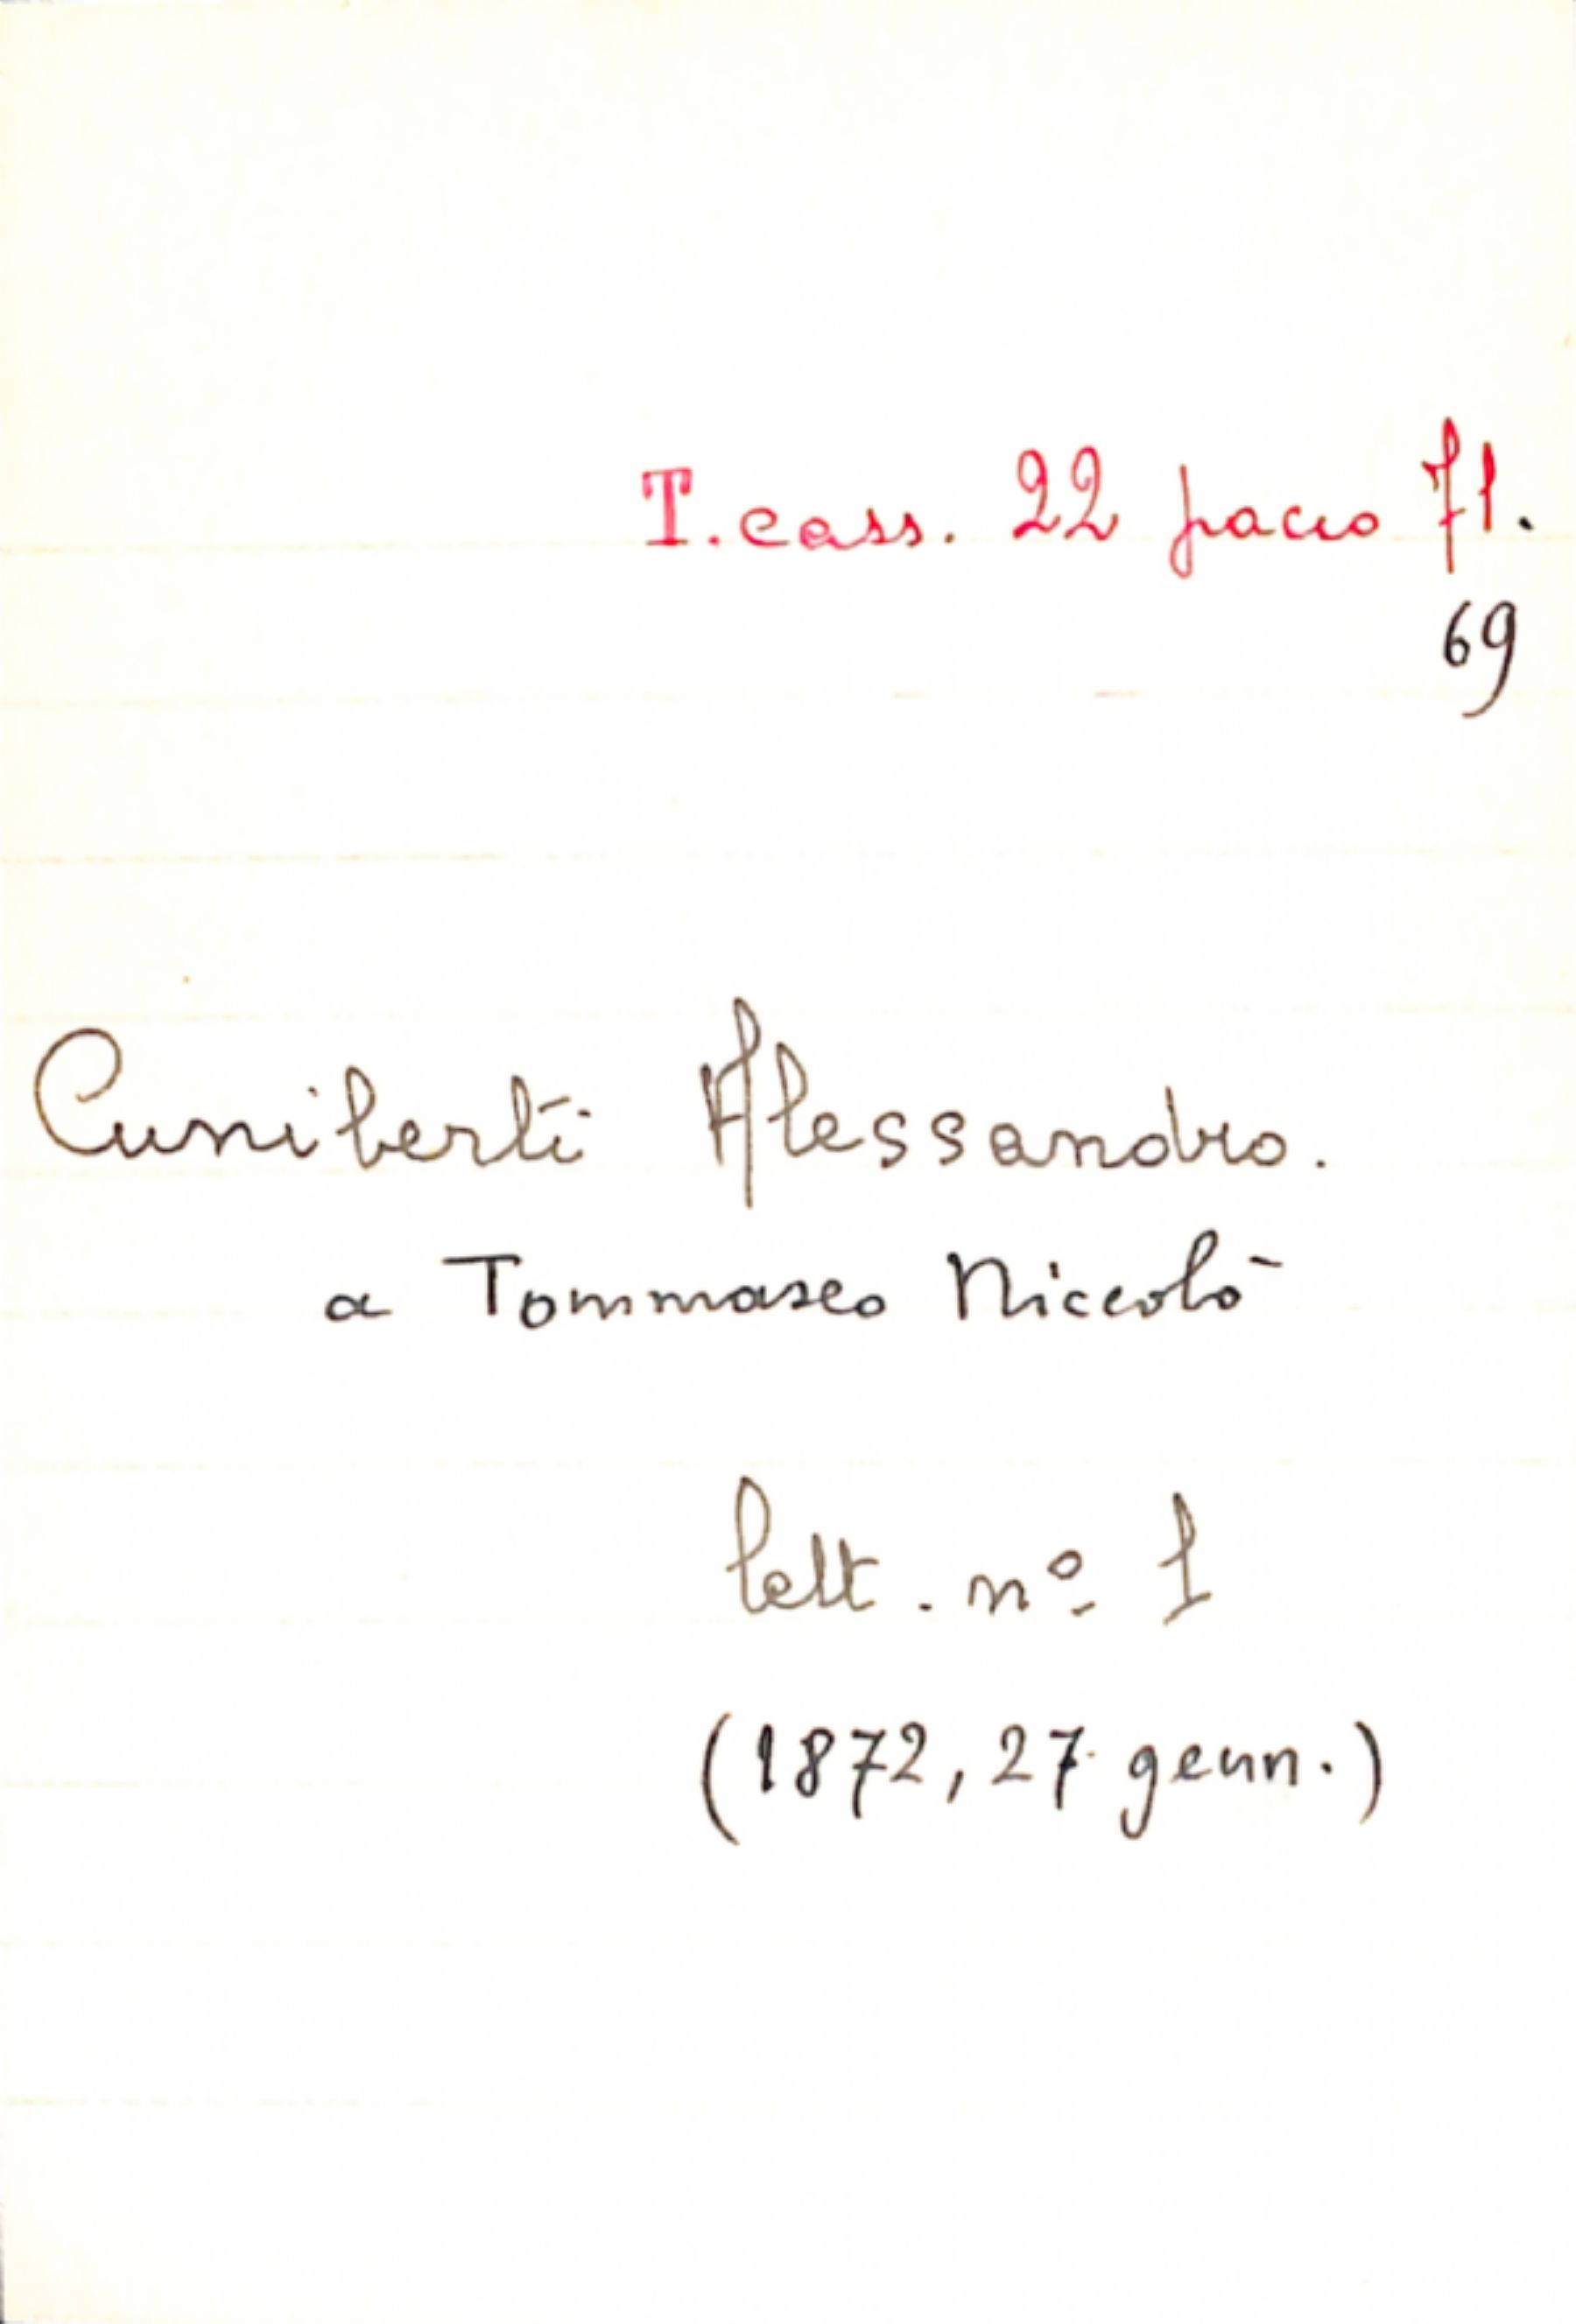 T. cass. 22 pacco 71.
69
Cuniberti Alessandro.
a Tommaseo Niccolò
lett. nº 1
(1872, 27 genn.)